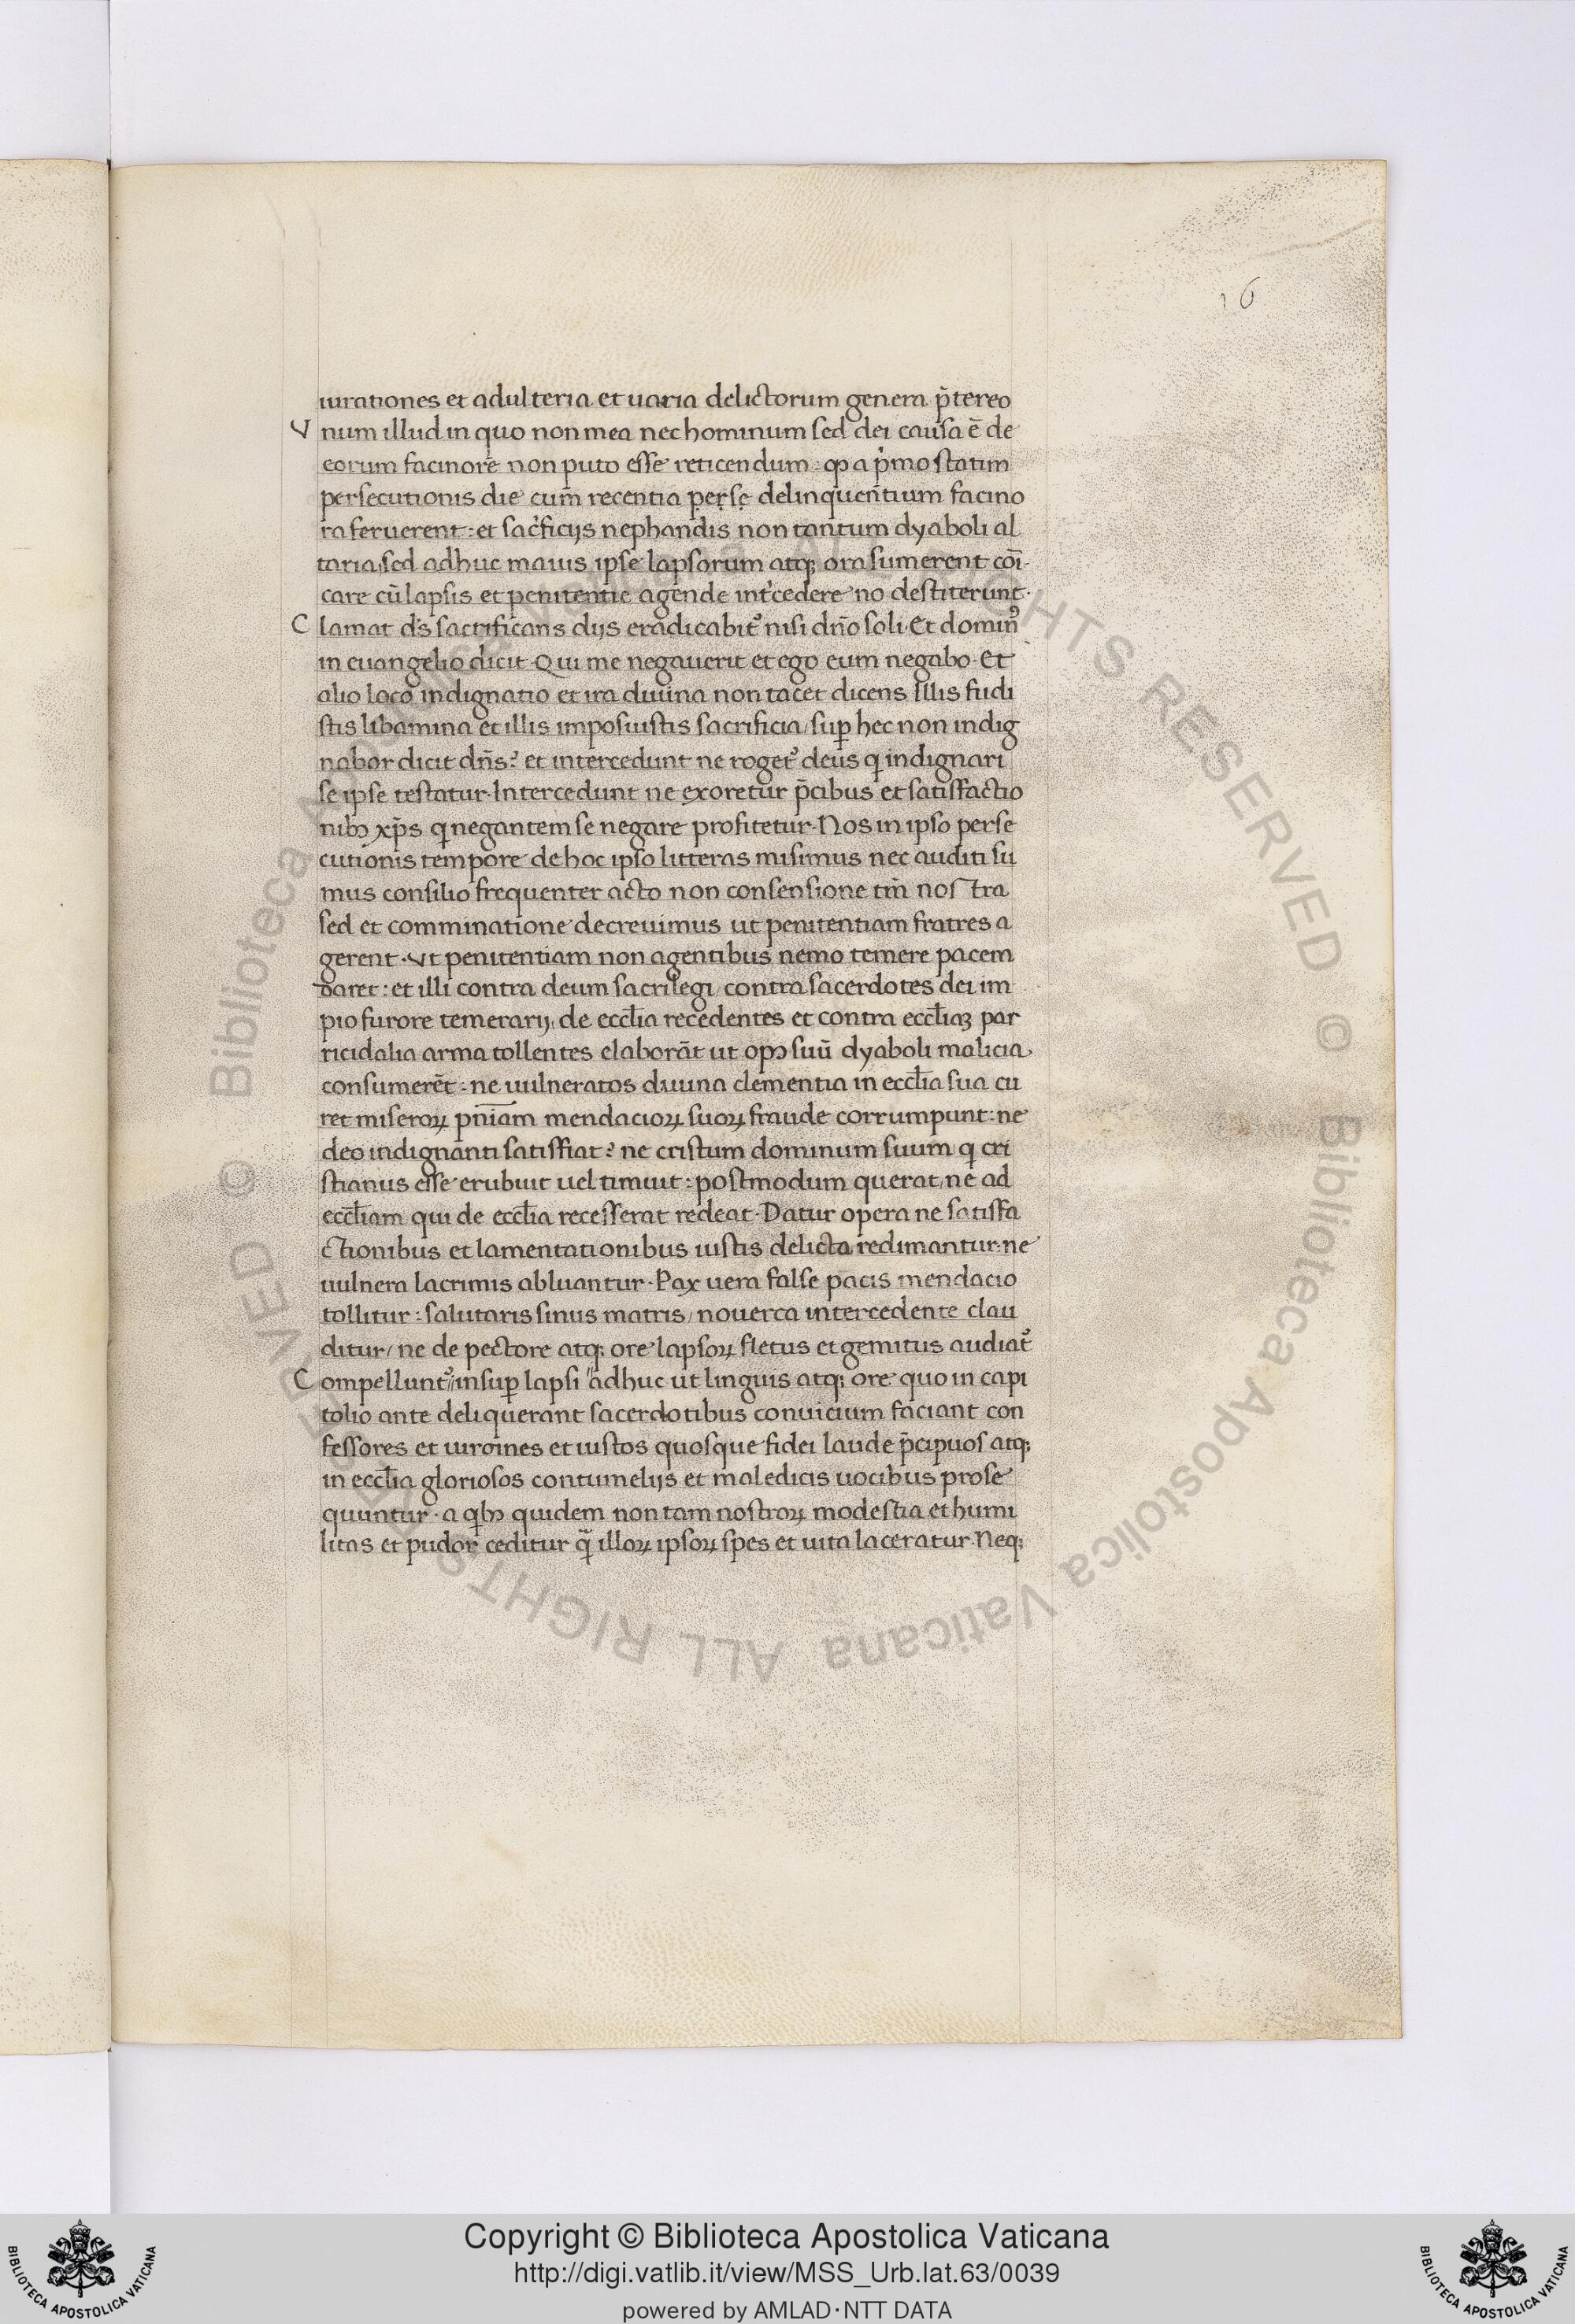 16
iurationes et adulteria et uaria delictorum genera p̄tereo
Vnum illud in quo non mea nec hominum sed dei causa ē de
eorum facinore non puto esse reticendum: ꝙ a p̍mo statim
persecutionis die cum recentia perse delinquentium facino
ra feruerent: et sac̍ficijs nephandis non tantum dyaboli al
taria, sed adhuc maius ipse lapsorum atq; ora sumerent cōi
care cū lapsis et penitentie agende int̍cedere no destiterunt.
Clamat ds̄ sacrificans dijs eradicabit᷑ nisi dn̄o soli. Et domin᷒
in euangelio dicit. Qui me negauerit et ego eum negabo. Et
alio loco indignatio et ira diuina non tacet dicens Illis fudi
stis libamina et illis imposuistis sacrificia/ suꝑ hec non indig
nabor dicit dn̄s? et intercedunt ne roget᷑ deus q̍ indignari
se ipse testatur. Intercedunt ne exoretur p̄cibus et satisfactio
nibꝫ xp̄s q̍ negantem se negare profitetur. Nos in ipso perse
cutionis tempore de hoc ipso litteras misimus nec auditi su
mus consilio frequenter acto non consensione tm̄ nostra
sed et comminatione decreuimus ut penitentiam fratres a
gerent. Vt penitentiam non agentibus nemo temere pacem
daret: et illi contra deum sacrilegi, contra sacerdotes dei im
pio furore temerarij, de eccl̄ia recedentes et contra eccl̄iaꝫ par
ricidalia arma tollentes elaborāt ut opꝰ suū dyaboli malicia
consumerēt: ne uulneratos diuina clementia in eccl̄ia sua cu
ret miseroꝝ pn̄iam mendacioꝝ suoꝝ fraude corrumpunt: ne
deo indignanti satisfiat? ne cristum dominum suum q̍ cri
stianus esse erubuit uel timuit: postmodum querat, ne ad
eccl̄iam qui de eccl̄ia recesserat redeat. Datur opera ne satisfa
ctionibus et lamentationibus iustis delicta redimantur: ne
uulnera lacrimis abluantur. Pax uera false pacis mendacio
tollitur: salutaris sinus matris, nouerca intercedente clau
ditur/ ne de pectore atq; ore lapsoꝝ fletus et gemitus audiat᷑
Compellunt᷑ "insuꝑ lapsi "adhuc ut linguis atq; ore quo in capi
tolio ante deliquerant sacerdotibus conuicium faciant con
fessores et uirgines et iustos quosque fidei laude p̄cipuos atq;
in eccl̄ia gloriosos contumelijs et maledicis uocibus prose
quuntur. a q̍bꝫ quidem non tam nostroꝝ modestia et humi
litas et pudor ceditur q̄ illoꝝ ipsoꝝ spes et uita laceratur. Neq;
© Biblioteca Apostolica Vaticana ALL RIGHTS RESERVED © Biblioteca Apostolica Vaticana ALL RIGHTS RESERVED
Copyright © Biblioteca Apostolica Vaticana
http://digi.vatlib.it/view/MSS_Urb.lat.63/0039
powered by AMLAD·NTT DATA
BIBLIOTECA APOSTOLICA VATICANA
BIBLIOTECA APOSTOLICA VATICANA